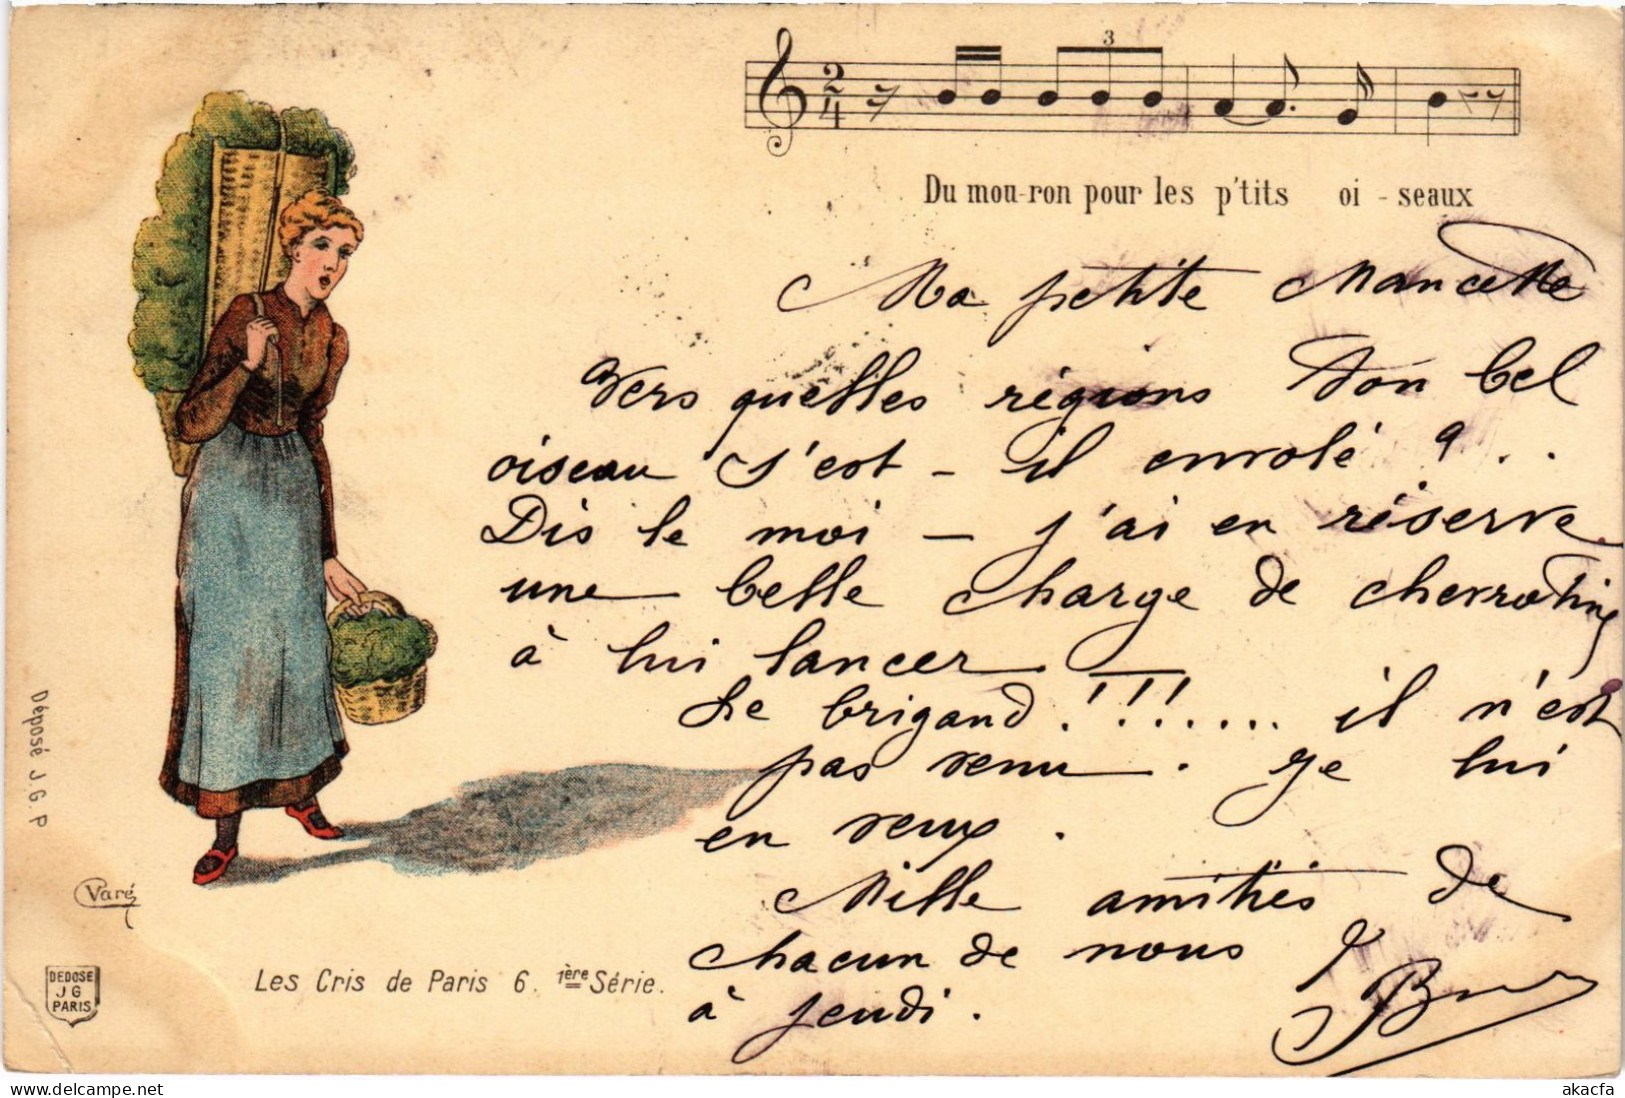 3
2
4
Du mou-ron pour les p'tits oi - seaux
Ma petite Mancelle
Vers quelles régions ton bel
oiseau s'est - il envolé ? . .
Dis le moi — j'ai en réserve
une belle charge de chevrotine
à lui lancer
Le brigand !!!!..... il n'est
pas venu . Je lui
en veux .
Mille amitiés de
chacun de nous
à jeudi .
Varé
Déposé J. G. P
DEPOSE
J G
PARIS
Les Cris de Paris 6. 1ère Série.
akacfa